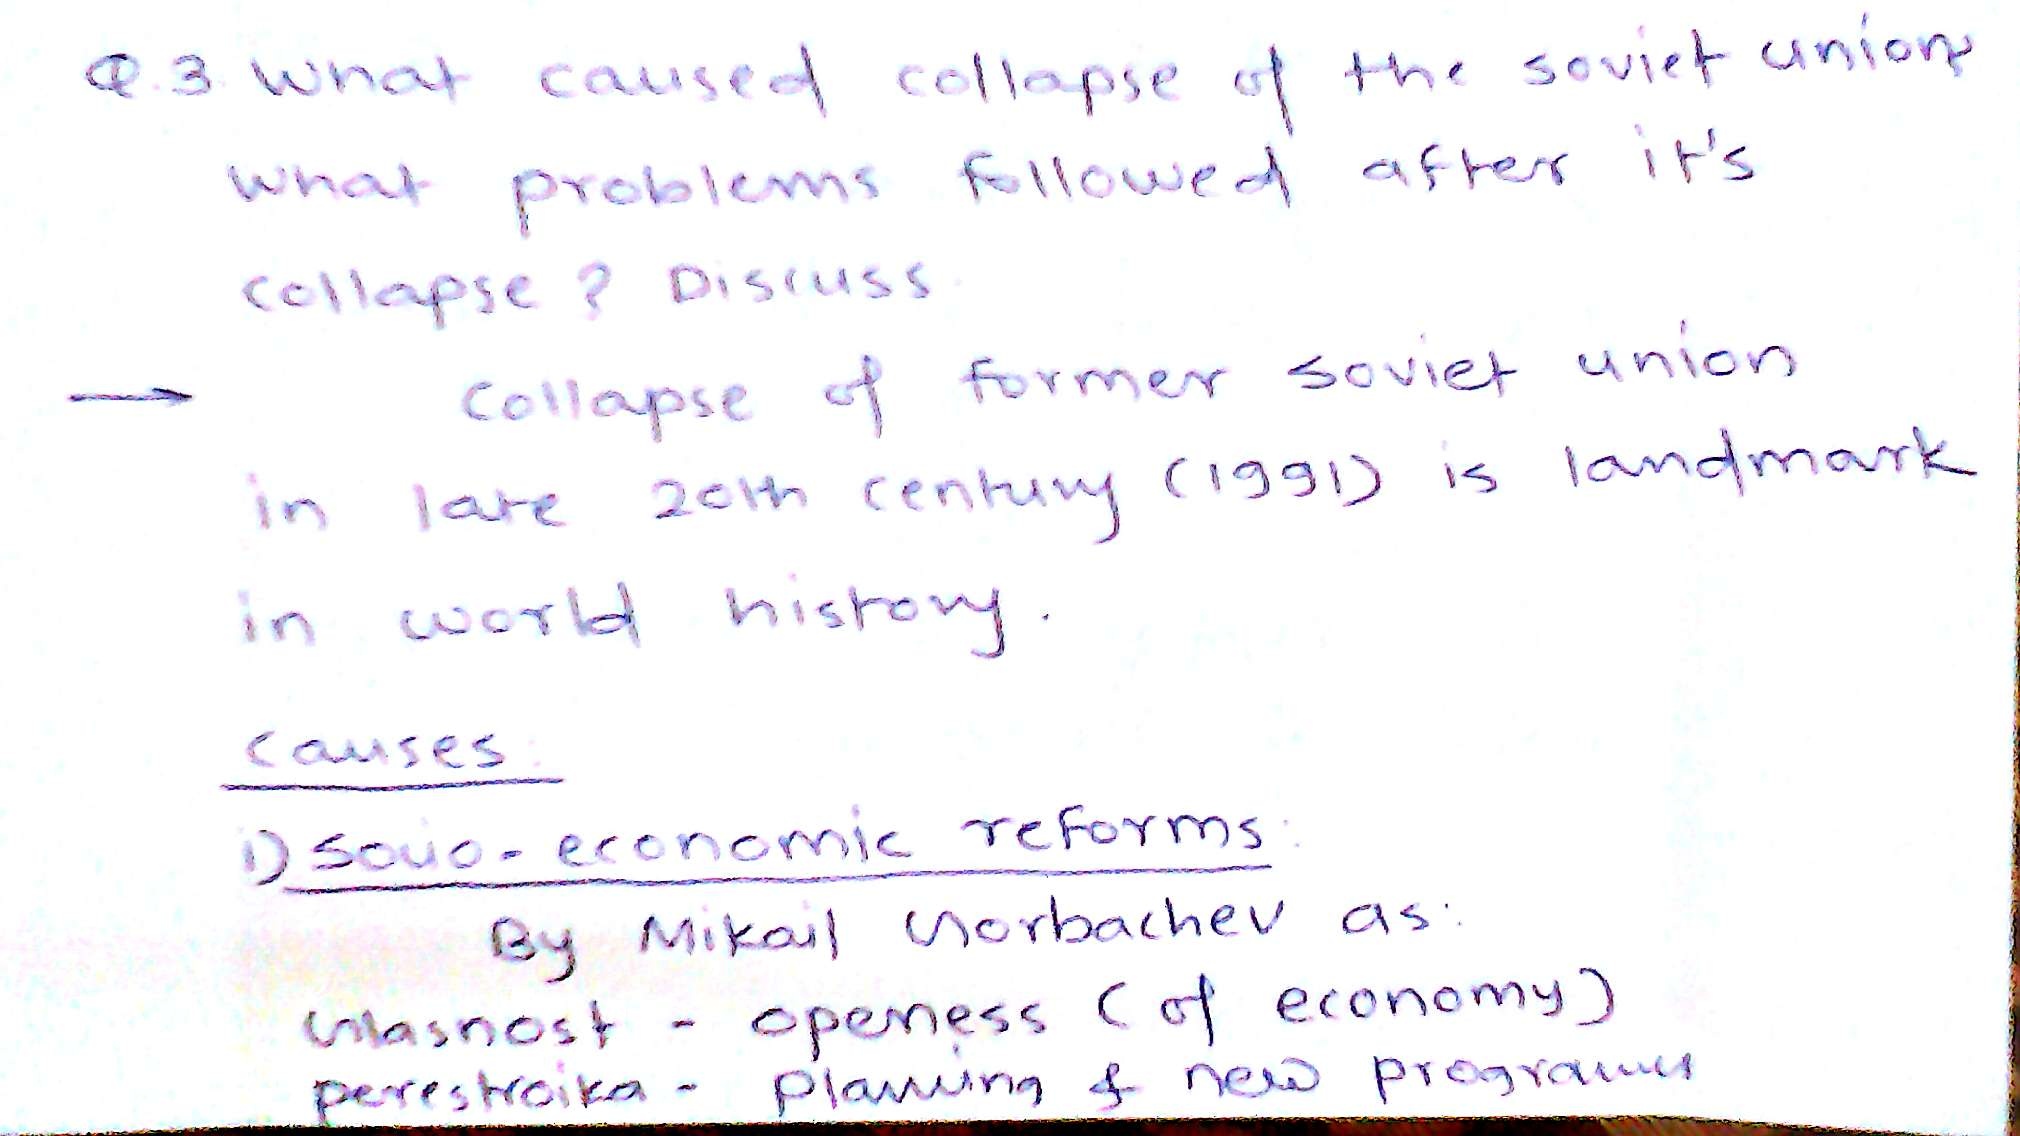 Q.3. What caused collapse of the soviet union?
What problems followed after it's
collapse? Discuss.
Collapse of former soviet union
in late 20th century (1991) is landmark
in world history.
causes:
1) Socio-economic reforms:
By Mikail Gorbachev as:
Glasnost - openess (of economy)
perestroika - planning & new programmes